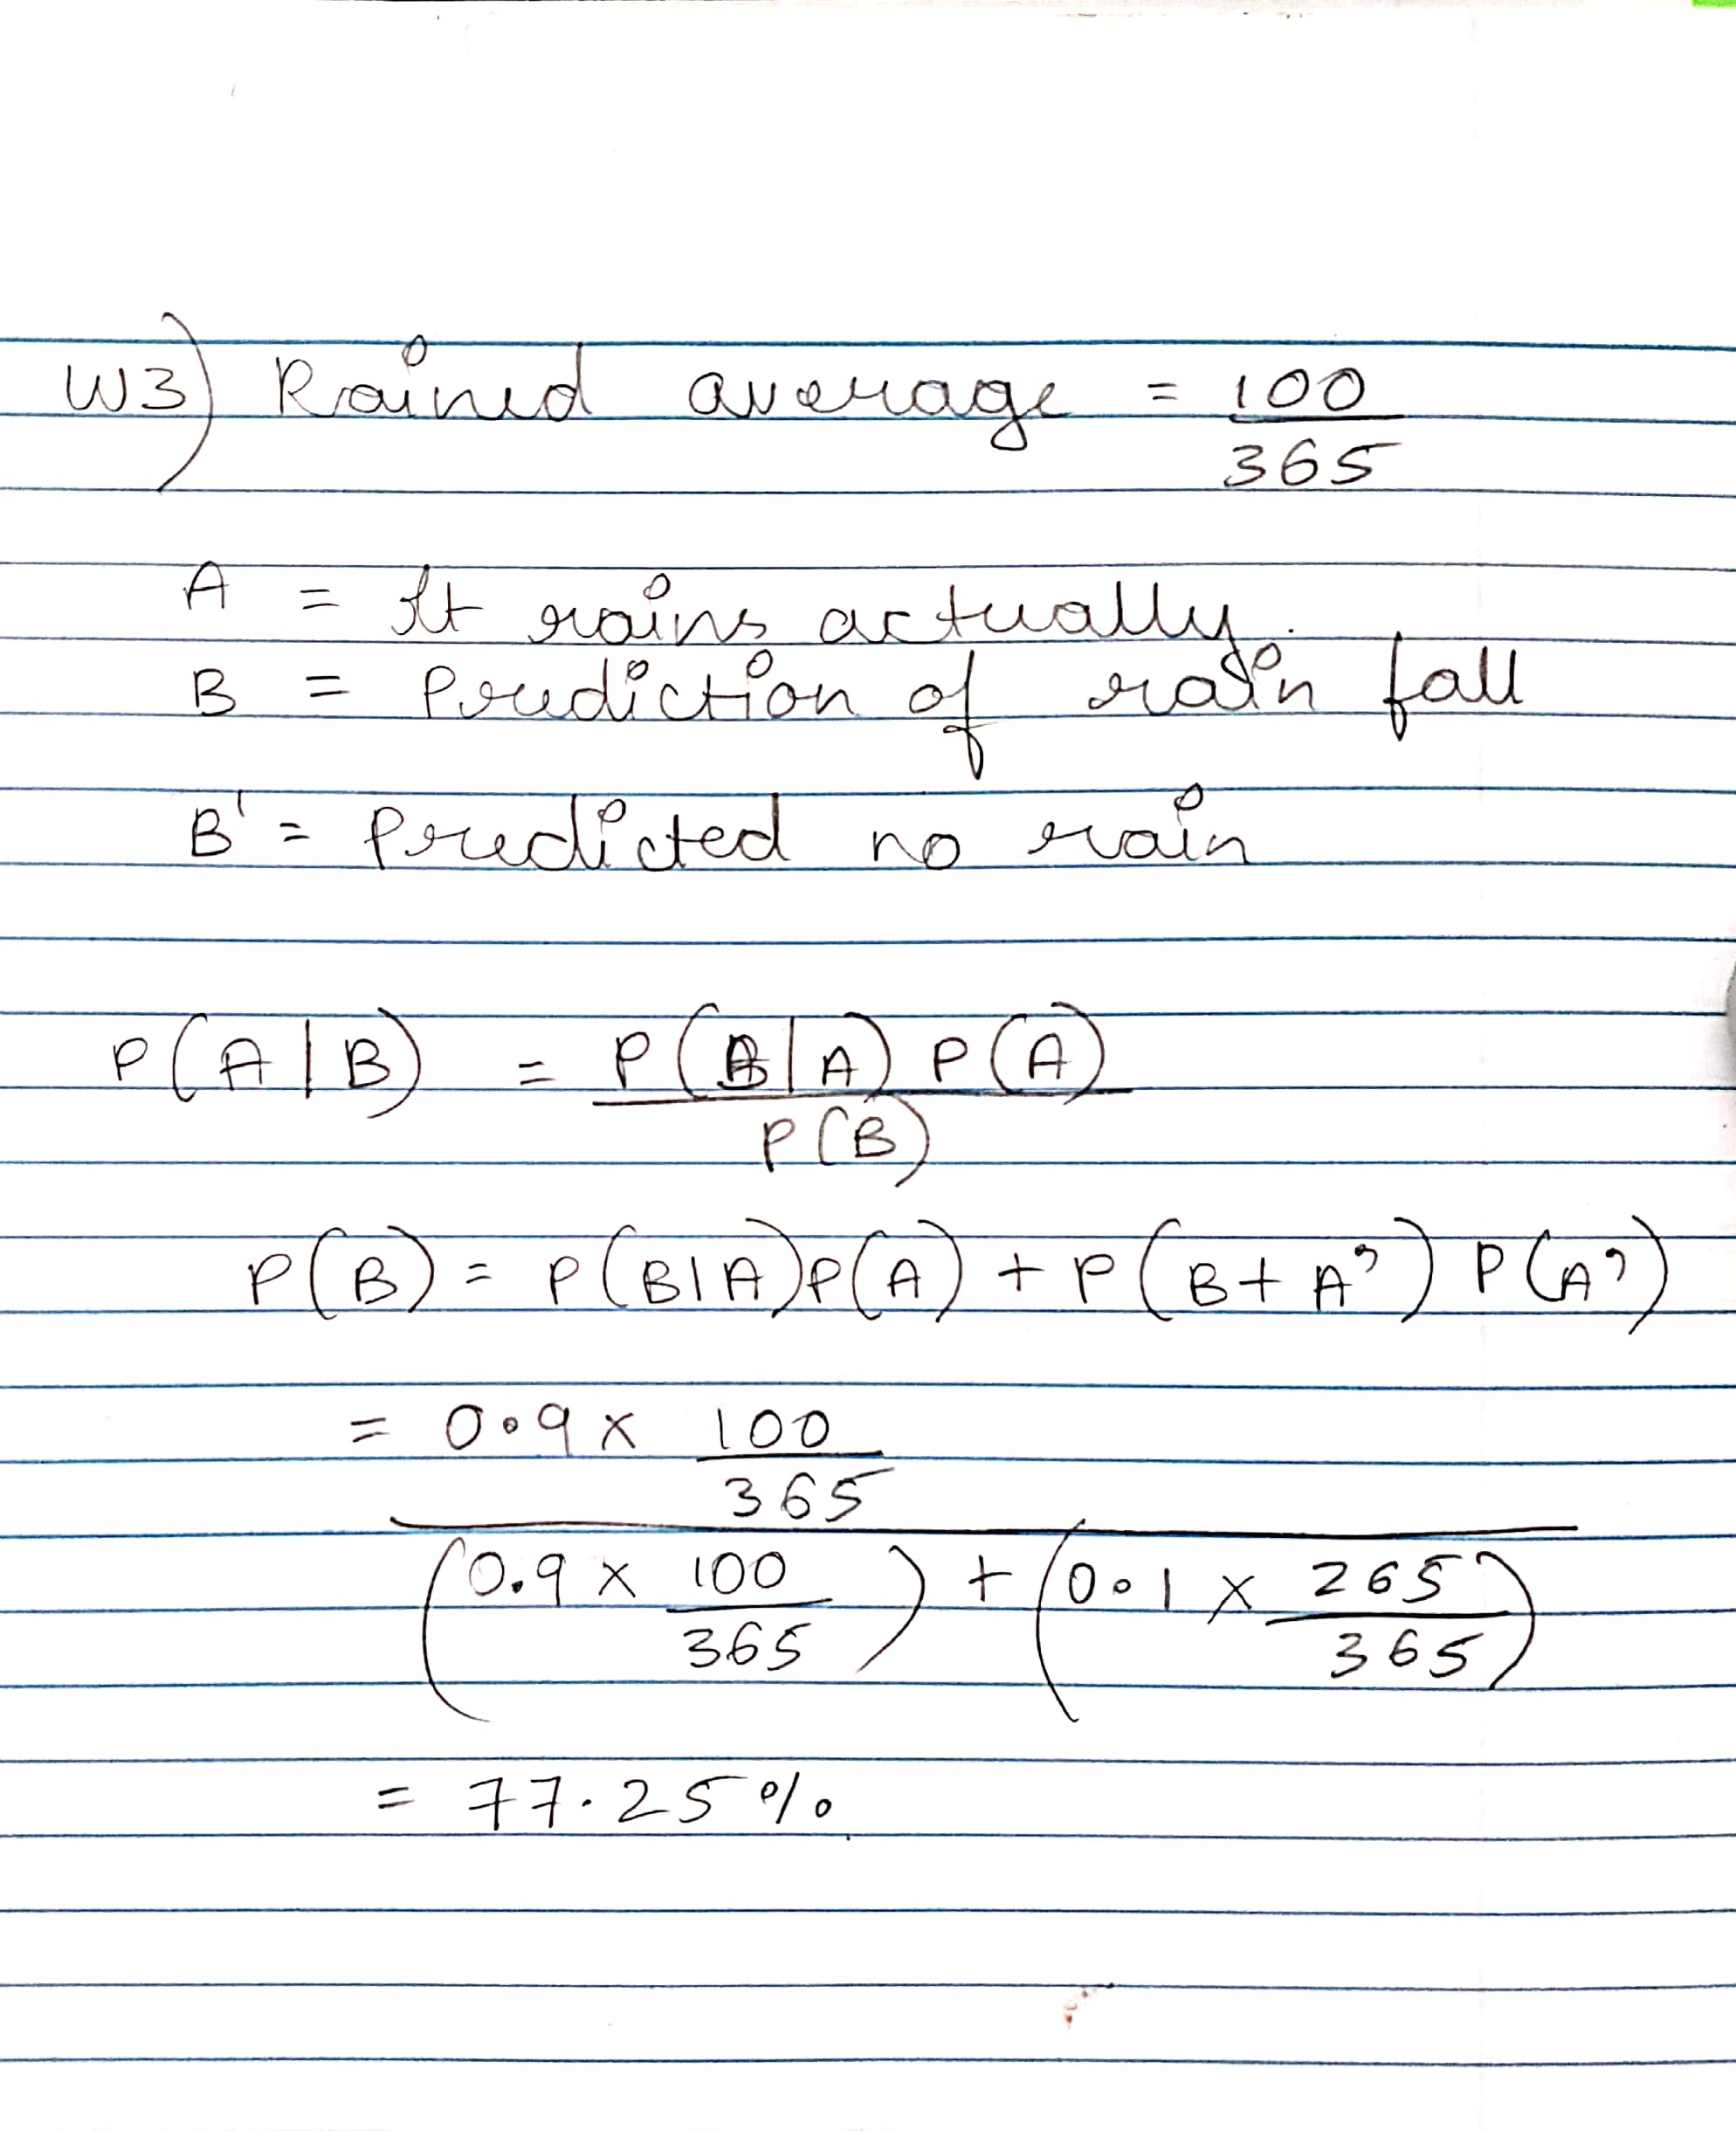 W3) Rained average = 100
365
A = It rains actually.
B = Prediction of rain fall
B' = Predicted no rain
P(A|B) = P(B|A) P(A)
P(B)
P(B) = P(B|A)P(A) + P(B+A') P(A')
= 0.9 x 100
365
(0.9 x 100 ) + (0.1 x 265 )
365 365
= 77.25%